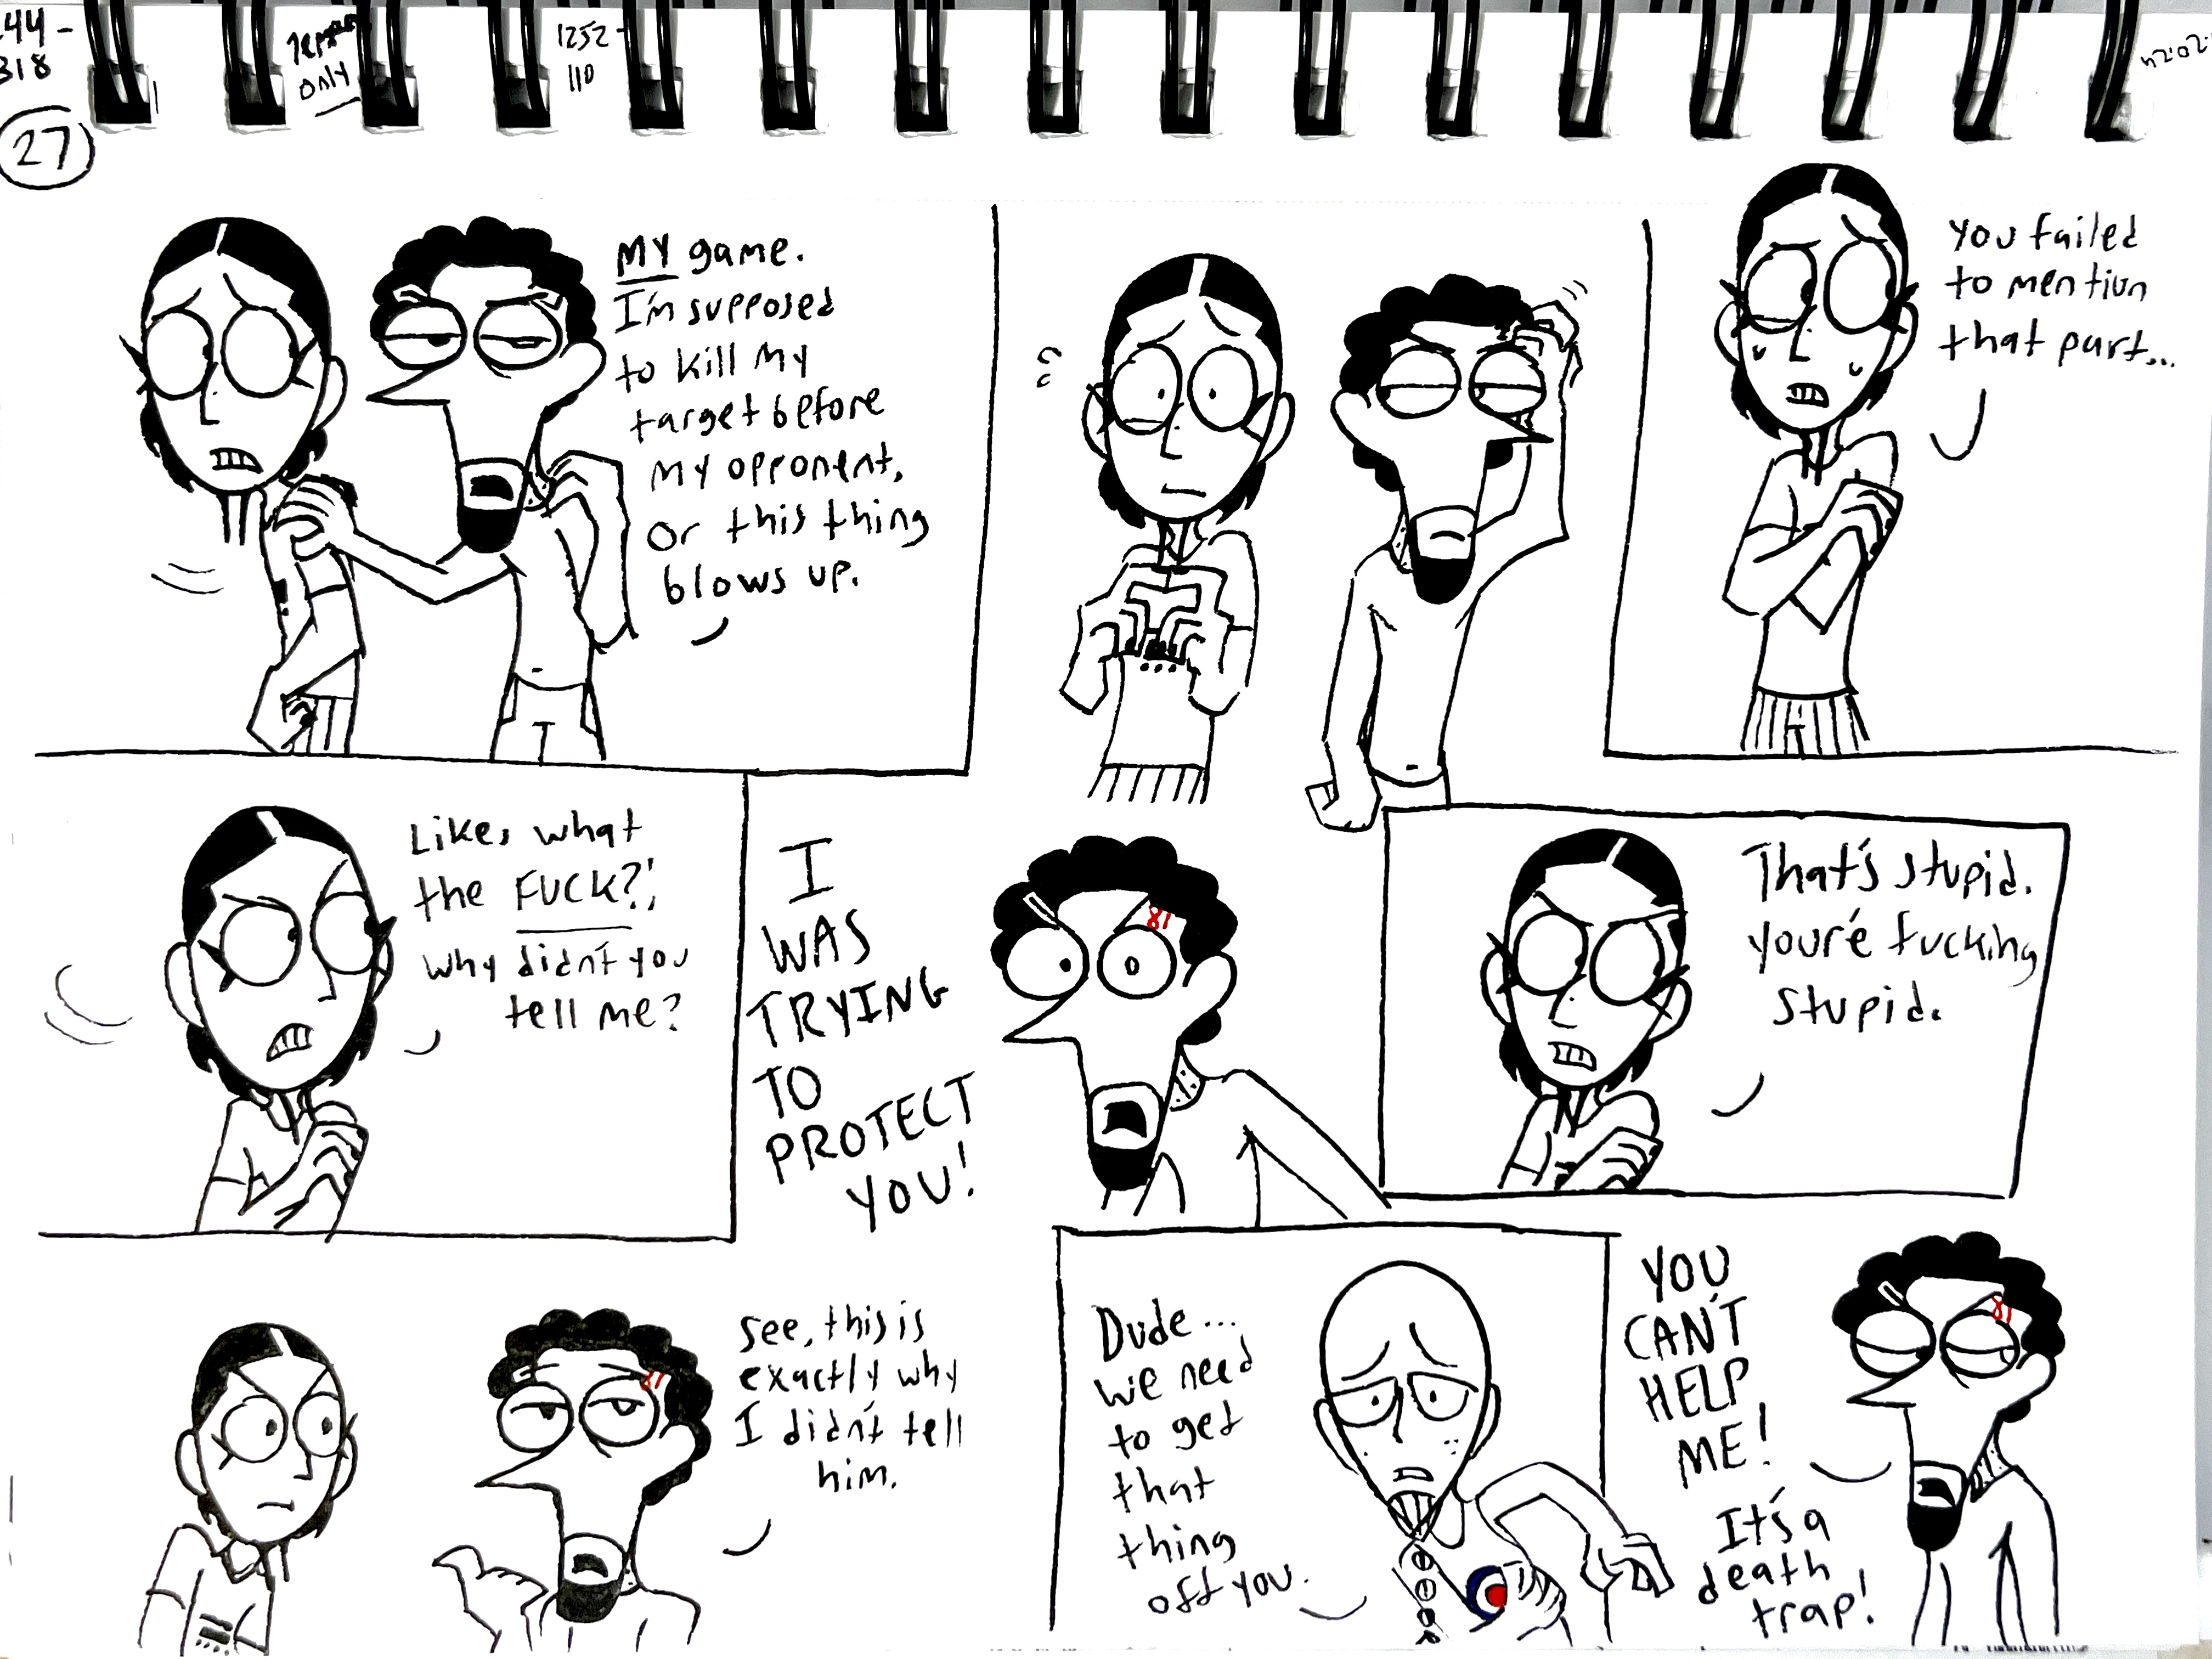 44-
318
only
1252-
110
27
MY game.
I'm supposed
to kill my
target before
my opponent,
or this thing
blows up.
You failed
to mention
that part...
Like, what
the FUCK?!
Why didn't you
tell me?
I
WAS
TRYING
TO
PROTECT
YOU!
81
That's stupid.
You're fucking
stupid.
See, this is
exactly why
I didn't tell
him.
81
Dude...
we need
to get
that
thing
off you.
YOU
CAN'T
HELP
ME!
It's a
death
trap!
81